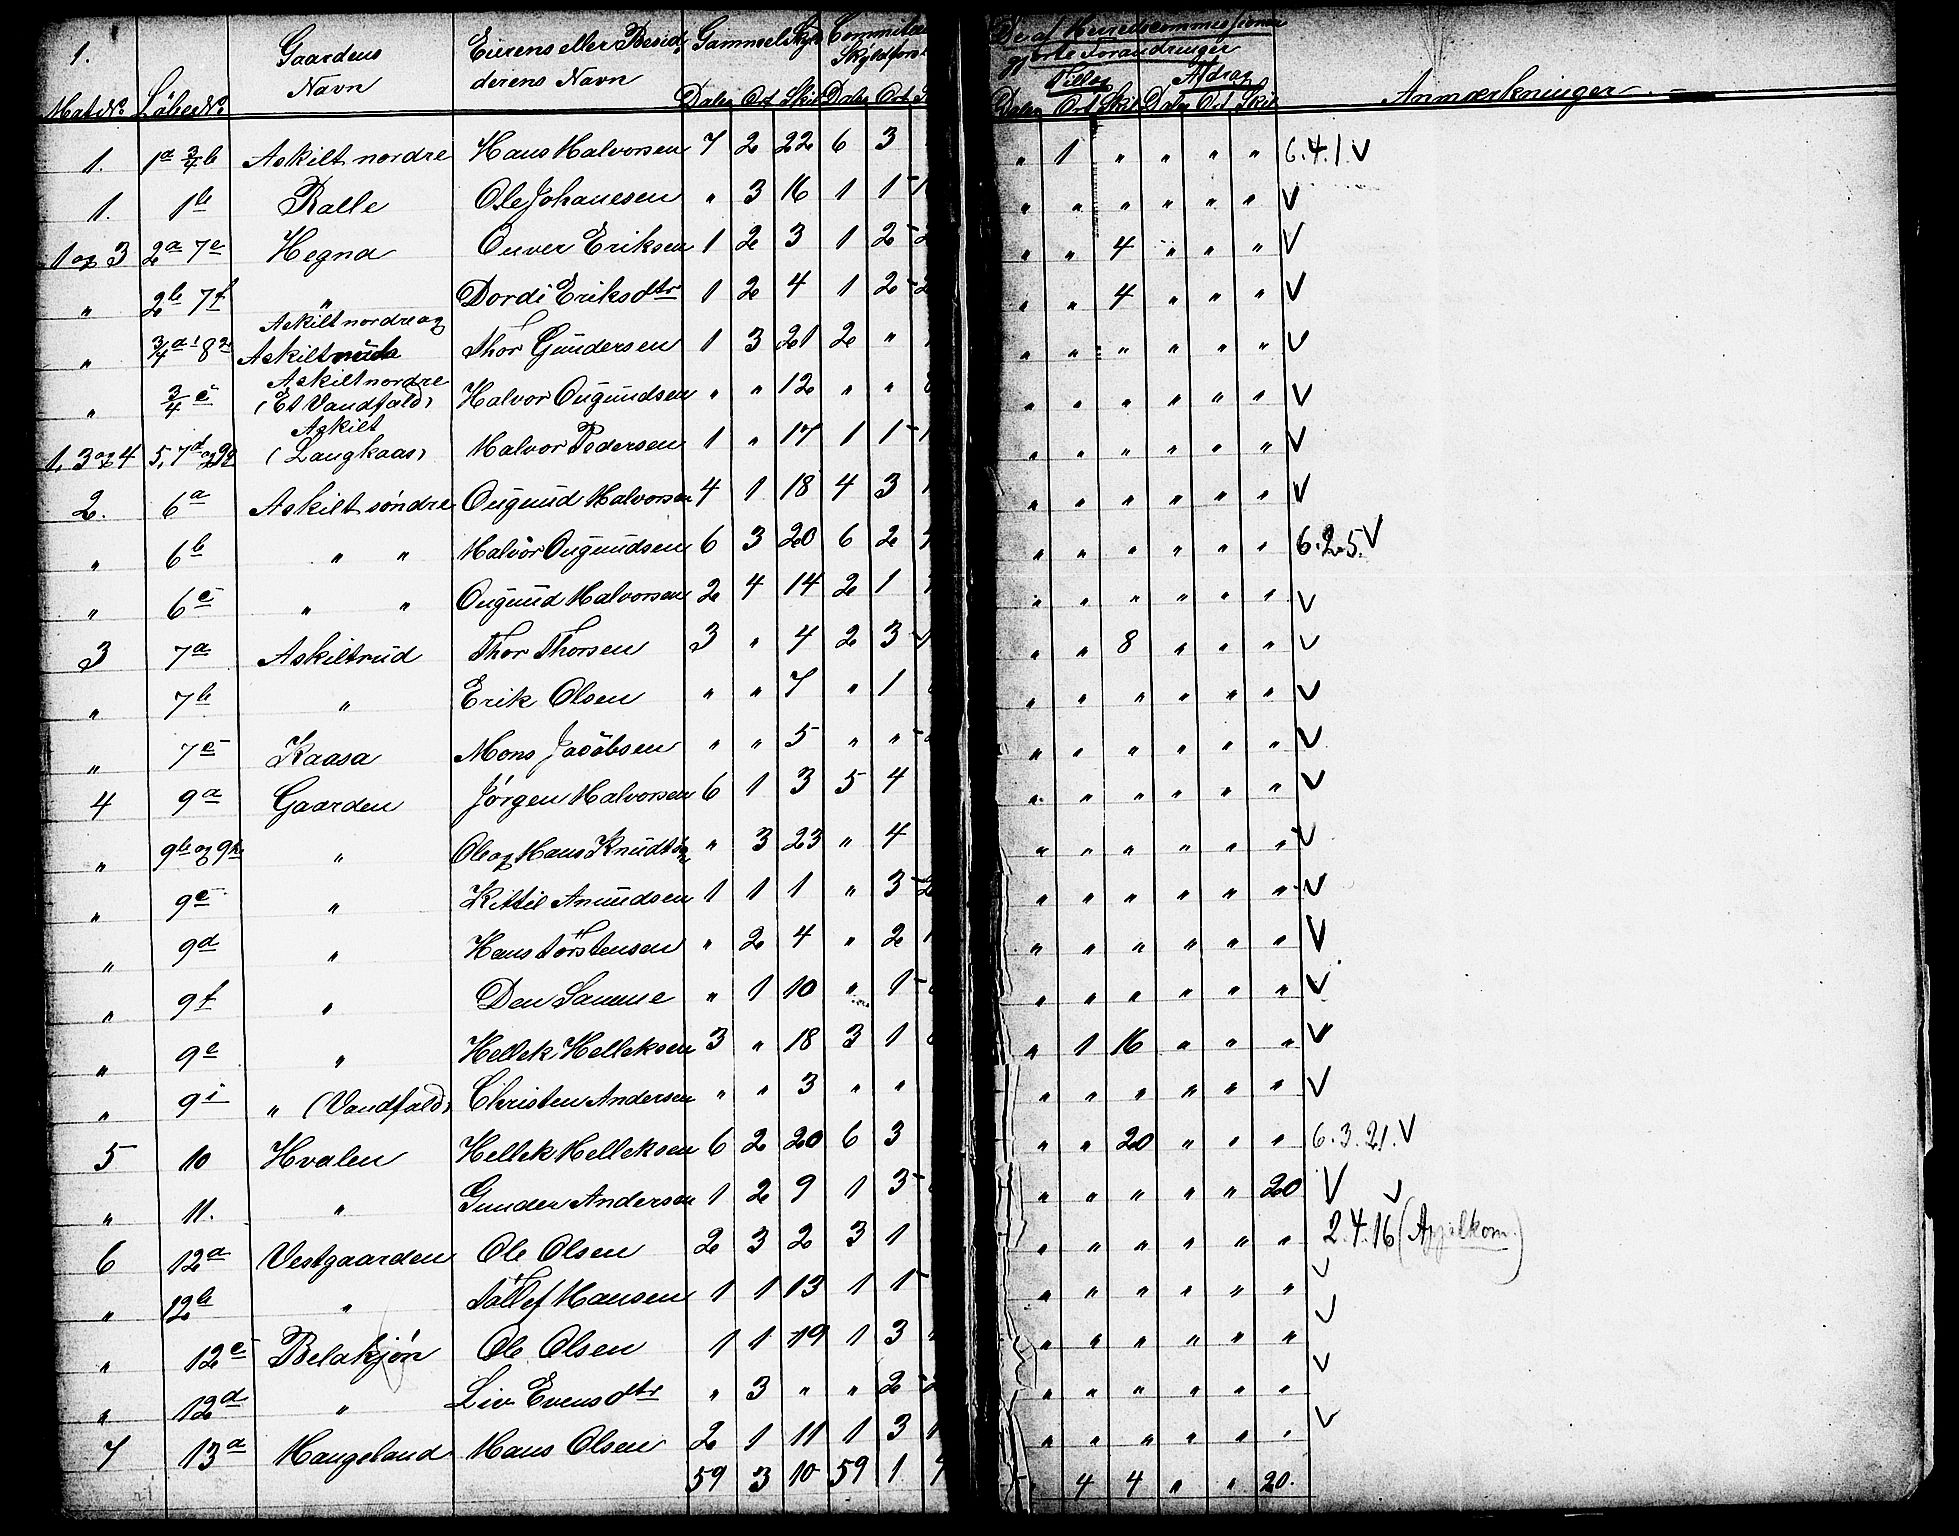 1. Gaardens Eierens eller Besid- Gammelskyld Committe De af Herredscommissionen
Navn derens Navn Skyldfors. gjorte Forandringer
Tillæg Afdrag Anmærkninger
Mat.No. Löbe No. Daler Ort Skil Daler Ort Daler Ort Skil Daler Ort Skil
1. 1a 3/4 b Askilt nordre Hans Halvorsen 7 2 22 6 3 " 1 " " " " 6.4.1. V
1. 1b Ralle Ole Johanesen " 3 16 1 1 " " " " " " V
1 og 3 2a 7e Hegna Ouver Eriksen 1 2 3 1 2 " " 4 " " " V
" 2b 7f " Dordi Eriksdtr 1 2 4 1 2 " " 4 " " " V
Askilt nordre og
" 3/4 a 8 Askiltruda Thor Gundersen 1 3 21 2 " " " " " " " V
Askilt nordre
" 3/4 c (Et Vandfald) Halvor Ougundsen " " 12 " " " " " " " " V
Askilt
1, 3 og 4 5, 7d og 9g (Langkaas) Halvor Pedersen 1 " 17 1 1 " " " " " " V
2. 6a Askilt söndre Ougund Halvorsen 4 1 18 4 3 " " " " " " V
" 6b " " Halvor Ougundsen 6 3 20 6 2 " " " " " " 6.2.5. V
" 6c " " Ougund Halvorsen 2 4 14 2 1 " " " " " " V
3 7a Askiltrud Thor Thorsen 3 " 4 2 3 " " 8 " " " V
" 7b " Erik Olsen " " 7 " 1 " " " " " " V
" 7c Kaasa Mons Jacobsen " " 5 " " " " " " " " V
4 9a Gaarden Jörgen Halvorsen 6 1 3 5 4 " " " " " " V
" 9b og 9h " Ole og Hans Knudts. " 3 23 " 4 " " " " " " V
" 9c " Kittil Anundsen 1 1 1 " 3 " " " " " " V
" 9d " Hans Torstensen " 2 4 " 2 " " " " " " V
" 9f " Den Samme " 1 10 " 1 " " " " " " V
" 9e " Hellek Helleksen 3 " 18 3 1 " 1 16 " " " V
" 9i " (Vandfald) Christen Andersen " " 3 " " " " " " " " V
5 10 Hvalen Hellek Helleksen 6 2 20 6 3 " " 20 " " " 6.3.21. V
" 11. " Gunder Andersen 1 2 9 1 3 " " " " " 20 V
6 12a Vestgaarden Ole Olsen 2 3 2 3 1 " " " " " " 2.4.16 V (Appelkom.)
" 12b " Tollef Hansen 1 1 13 1 1 " " " " " " V
" 12c Belakjön Ole Olsen 1 1 19 1 3 " " " " " " V
" 12d " Liv Evensdtr " 3 " " 2 " " " " " " V
7 13a Haugeland Hans Olsen 2 1 11 1 3 " " " " " " V
59 3 10 59 1 4 4 " " 20.